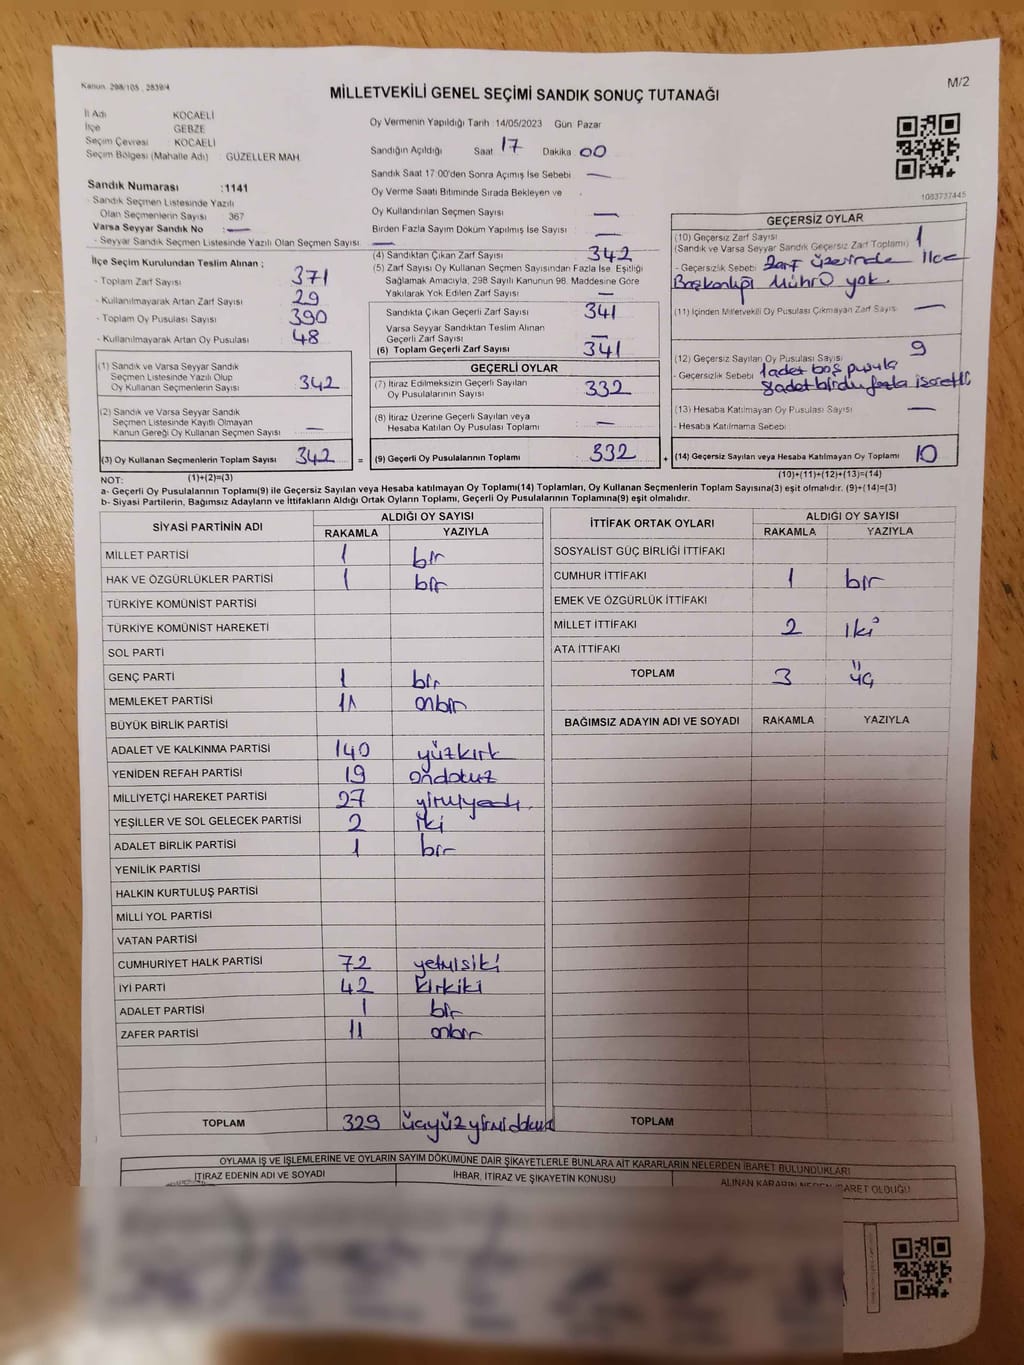 Kanun. 298/105 , 2839/4
M/2
MİLLETVEKİLİ GENEL SEÇİMİ SANDIK SONUÇ TUTANAĞI
İl Adı KOCAELİ
İlçe GEBZE
Seçim Çevresi : KOCAELİ
Seçim Bölgesi (Mahalle Adı) : GÜZELLER MAH.
Sandık Numarası :1141
- Sandık Seçmen Listesinde Yazılı
Olan Seçmenlerin Sayısı : 367
Varsa Seyyar Sandık No : —
- Seyyar Sandık Seçmen Listesinde Yazılı Olan Seçmen Sayısı : —
Oy Vermenin Yapıldığı Tarih :14/05/2023 Gün: Pazar
Sandığın Açıldığı Saat 17 Dakika 00
Sandık Saat 17:00'den Sonra Açımış İse Sebebi —
Oy Verme Saati Bitiminde Sırada Bekleyen ve
Oy Kullandırılan Seçmen Sayısı —
Birden Fazla Sayım Döküm Yapılmış İse Sayısı : —
1083737445
İlçe Seçim Kurulundan Teslim Alınan ;
- Toplam Zarf Sayısı 371
- Kullanılmayarak Artan Zarf Sayısı 29
- Toplam Oy Pusulası Sayısı 390
- Kullanılmayarak Artan Oy Pusulası 48
(1) Sandık ve Varsa Seyyar Sandık
Seçmen Listesinde Yazılı Olup
Oy Kullanan Seçmenlerin Sayısı : 342
(2) Sandık ve Varsa Seyyar Sandık
Seçmen Listesinde Kayıtlı Olmayan
Kanun Gereği Oy Kullanan Seçmen Sayısı : —
(3) Oy Kullanan Seçmenlerin Toplam Sayısı : 342 =
(1)+(2)=(3)
(4) Sandıktan Çıkan Zarf Sayısı : 342
(5) Zarf Sayısı Oy Kullanan Seçmen Sayısından Fazla İse, Eşitliği
Sağlamak Amacıyla, 298 Sayılı Kanunun 98. Maddesine Göre
Yakılarak Yok Edilen Zarf Sayısı : —
Sandıkta Çıkan Geçerli Zarf Sayısı : 341
Varsa Seyyar Sandıktan Teslim Alınan
Geçerli Zarf Sayısı : —
(6) Toplam Geçerli Zarf Sayısı : 341
GEÇERLİ OYLAR
(7) İtiraz Edilmeksizin Geçerli Sayılan
Oy Pusulalarının Sayısı : 332
(8) İtiraz Üzerine Geçerli Sayılan veya
Hesaba Katılan Oy Pusulası Toplamı : —
(9) Geçerli Oy Pusulalarının Toplamı : 332 +
GEÇERSİZ OYLAR
(10) Geçersiz Zarf Sayısı
(Sandık ve Varsa Seyyar Sandık Geçersiz Zarf Toplamı) : 1
- Geçersizlik Sebebi : Zarf üzerinde ilce
Başkanlığı Mührü yok.
(11) İçinden Milletvekili Oy Pusulası Çıkmayan Zarf Sayısı : —
(12) Geçersiz Sayılan Oy Pusulası Sayısı : 9
- Geçersizlik Sebebi : 1adet boş pusula
8adet birden fazla isaretli
(13) Hesaba Katılmayan Oy Pusulası Sayısı : —
- Hesaba Katılmama Sebebi :
(14) Geçersiz Sayılan veya Hesaba Katılmayan Oy Toplamı : 10
(10)+(11)+(12)+(13)=(14)
NOT:
a- Geçerli Oy Pusulalarının Toplamı(9) ile Geçersiz Sayılan veya Hesaba Katılmayan Oy Toplamı(14) Toplamları, Oy Kullanan Seçmenlerin Toplam Sayısına(3) eşit olmalıdır. (9)+(14)=(3)
b- Siyasi Partilerin, Bağımsız Adayların ve İttifakların Aldığı Ortak Oyların Toplamı, Geçerli Oy Pusulalarının Toplamına(9) eşit olmalıdır.
SİYASİ PARTİNİN ADI ALDIĞI OY SAYISI
RAKAMLA YAZIYLA
MİLLET PARTİSİ 1 bir
HAK VE ÖZGÜRLÜKLER PARTİSİ 1 bir
TÜRKİYE KOMÜNİST PARTİSİ
TÜRKİYE KOMÜNİST HAREKETİ
SOL PARTİ
GENÇ PARTİ 1 bir
MEMLEKET PARTİSİ 11 onbir
BÜYÜK BİRLİK PARTİSİ
ADALET VE KALKINMA PARTİSİ 140 yüzkırk
YENİDEN REFAH PARTİSİ 19 ondokuz
MİLLİYETÇİ HAREKET PARTİSİ 27 yirmiyedi
YEŞİLLER VE SOL GELECEK PARTİSİ 2 iki
ADALET BİRLİK PARTİSİ 1 bir
YENİLİK PARTİSİ
HALKIN KURTULUŞ PARTİSİ
MİLLİ YOL PARTİSİ
VATAN PARTİSİ
CUMHURİYET HALK PARTİSİ 72 yetmisiki
İYİ PARTİ 42 kırkiki
ADALET PARTİSİ 1 bir
ZAFER PARTİSİ 11 onbir
TOPLAM 329 üçyüzyirmidokuz
İTTİFAK ORTAK OYLARI ALDIĞI OY SAYISI
RAKAMLA YAZIYLA
SOSYALİST GÜÇ BİRLİĞİ İTTİFAKI
CUMHUR İTTİFAKI 1 bir
EMEK VE ÖZGÜRLÜK İTTİFAKI
MİLLET İTTİFAKI 2 iki
ATA İTTİFAKI
TOPLAM 3 üç
BAĞIMSIZ ADAYIN ADI VE SOYADI RAKAMLA YAZIYLA
TOPLAM
OYLAMA İŞ VE İŞLEMLERİNE VE OYLARIN SAYIM DÖKÜMÜNE DAİR ŞİKAYETLERLE BUNLARA AİT KARARLARIN NELERDEN İBARET BULUNDUKLARI
İTİRAZ EDENİN ADI VE SOYADI İHBAR, İTİRAZ VE ŞİKAYETİN KONUSU ALINAN KARARIN NEDEN İBARET OLDUĞU